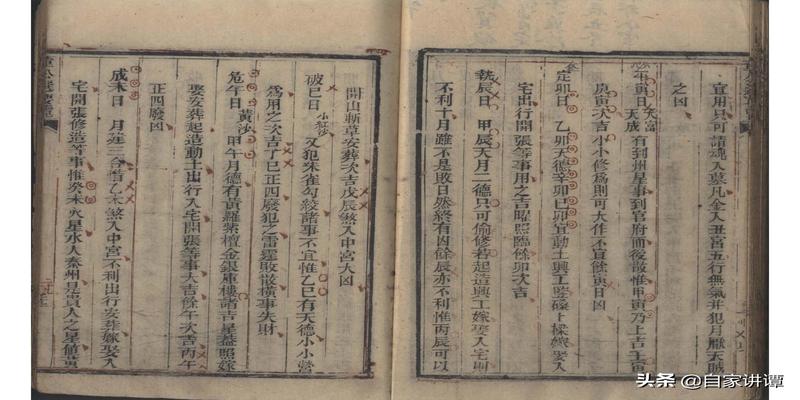 宜用只可請魂入墓凡金入丑宮五行無氣并犯月厭天賊
之凶
平寅日 天富 天成 有到州星事到官府而後散惟甲寅乃上吉壬寅
庚寅次吉小小修為則可大作不宜餘寅日凶
定卯日 乙卯天德辛卯己卯宜動土興工竪磉上樑嫁娶入
宅出行開張等事用之吉曜照臨餘卯次吉
執辰日 甲辰天月二德只可偷修若起造興工嫁娶入宅則
不利十月雖不是敗日然終有凶餘辰亦不利惟丙辰可以
開山斬草安葬次吉戊辰煞入中宮大凶
破巳日 小紅沙 又犯朱雀勾絞諸事不宜惟乙巳有天德小小營
為用之次吉丁巳正四廢犯之雷霆敗散橫事失財
危午日 黃沙 甲午月德有黃羅紫檀金銀庫樓諸吉星蓋照嫁
娶安葬起造動土出行入宅開張等事大吉餘午次吉丙午
正四廢凶
成未日 月 三合惜乙未煞入中宮不利出行安葬嫁娶入
宅開張修造等事惟癸未火星水人秦州見貴人之星值黃
头条 @自家讲谭